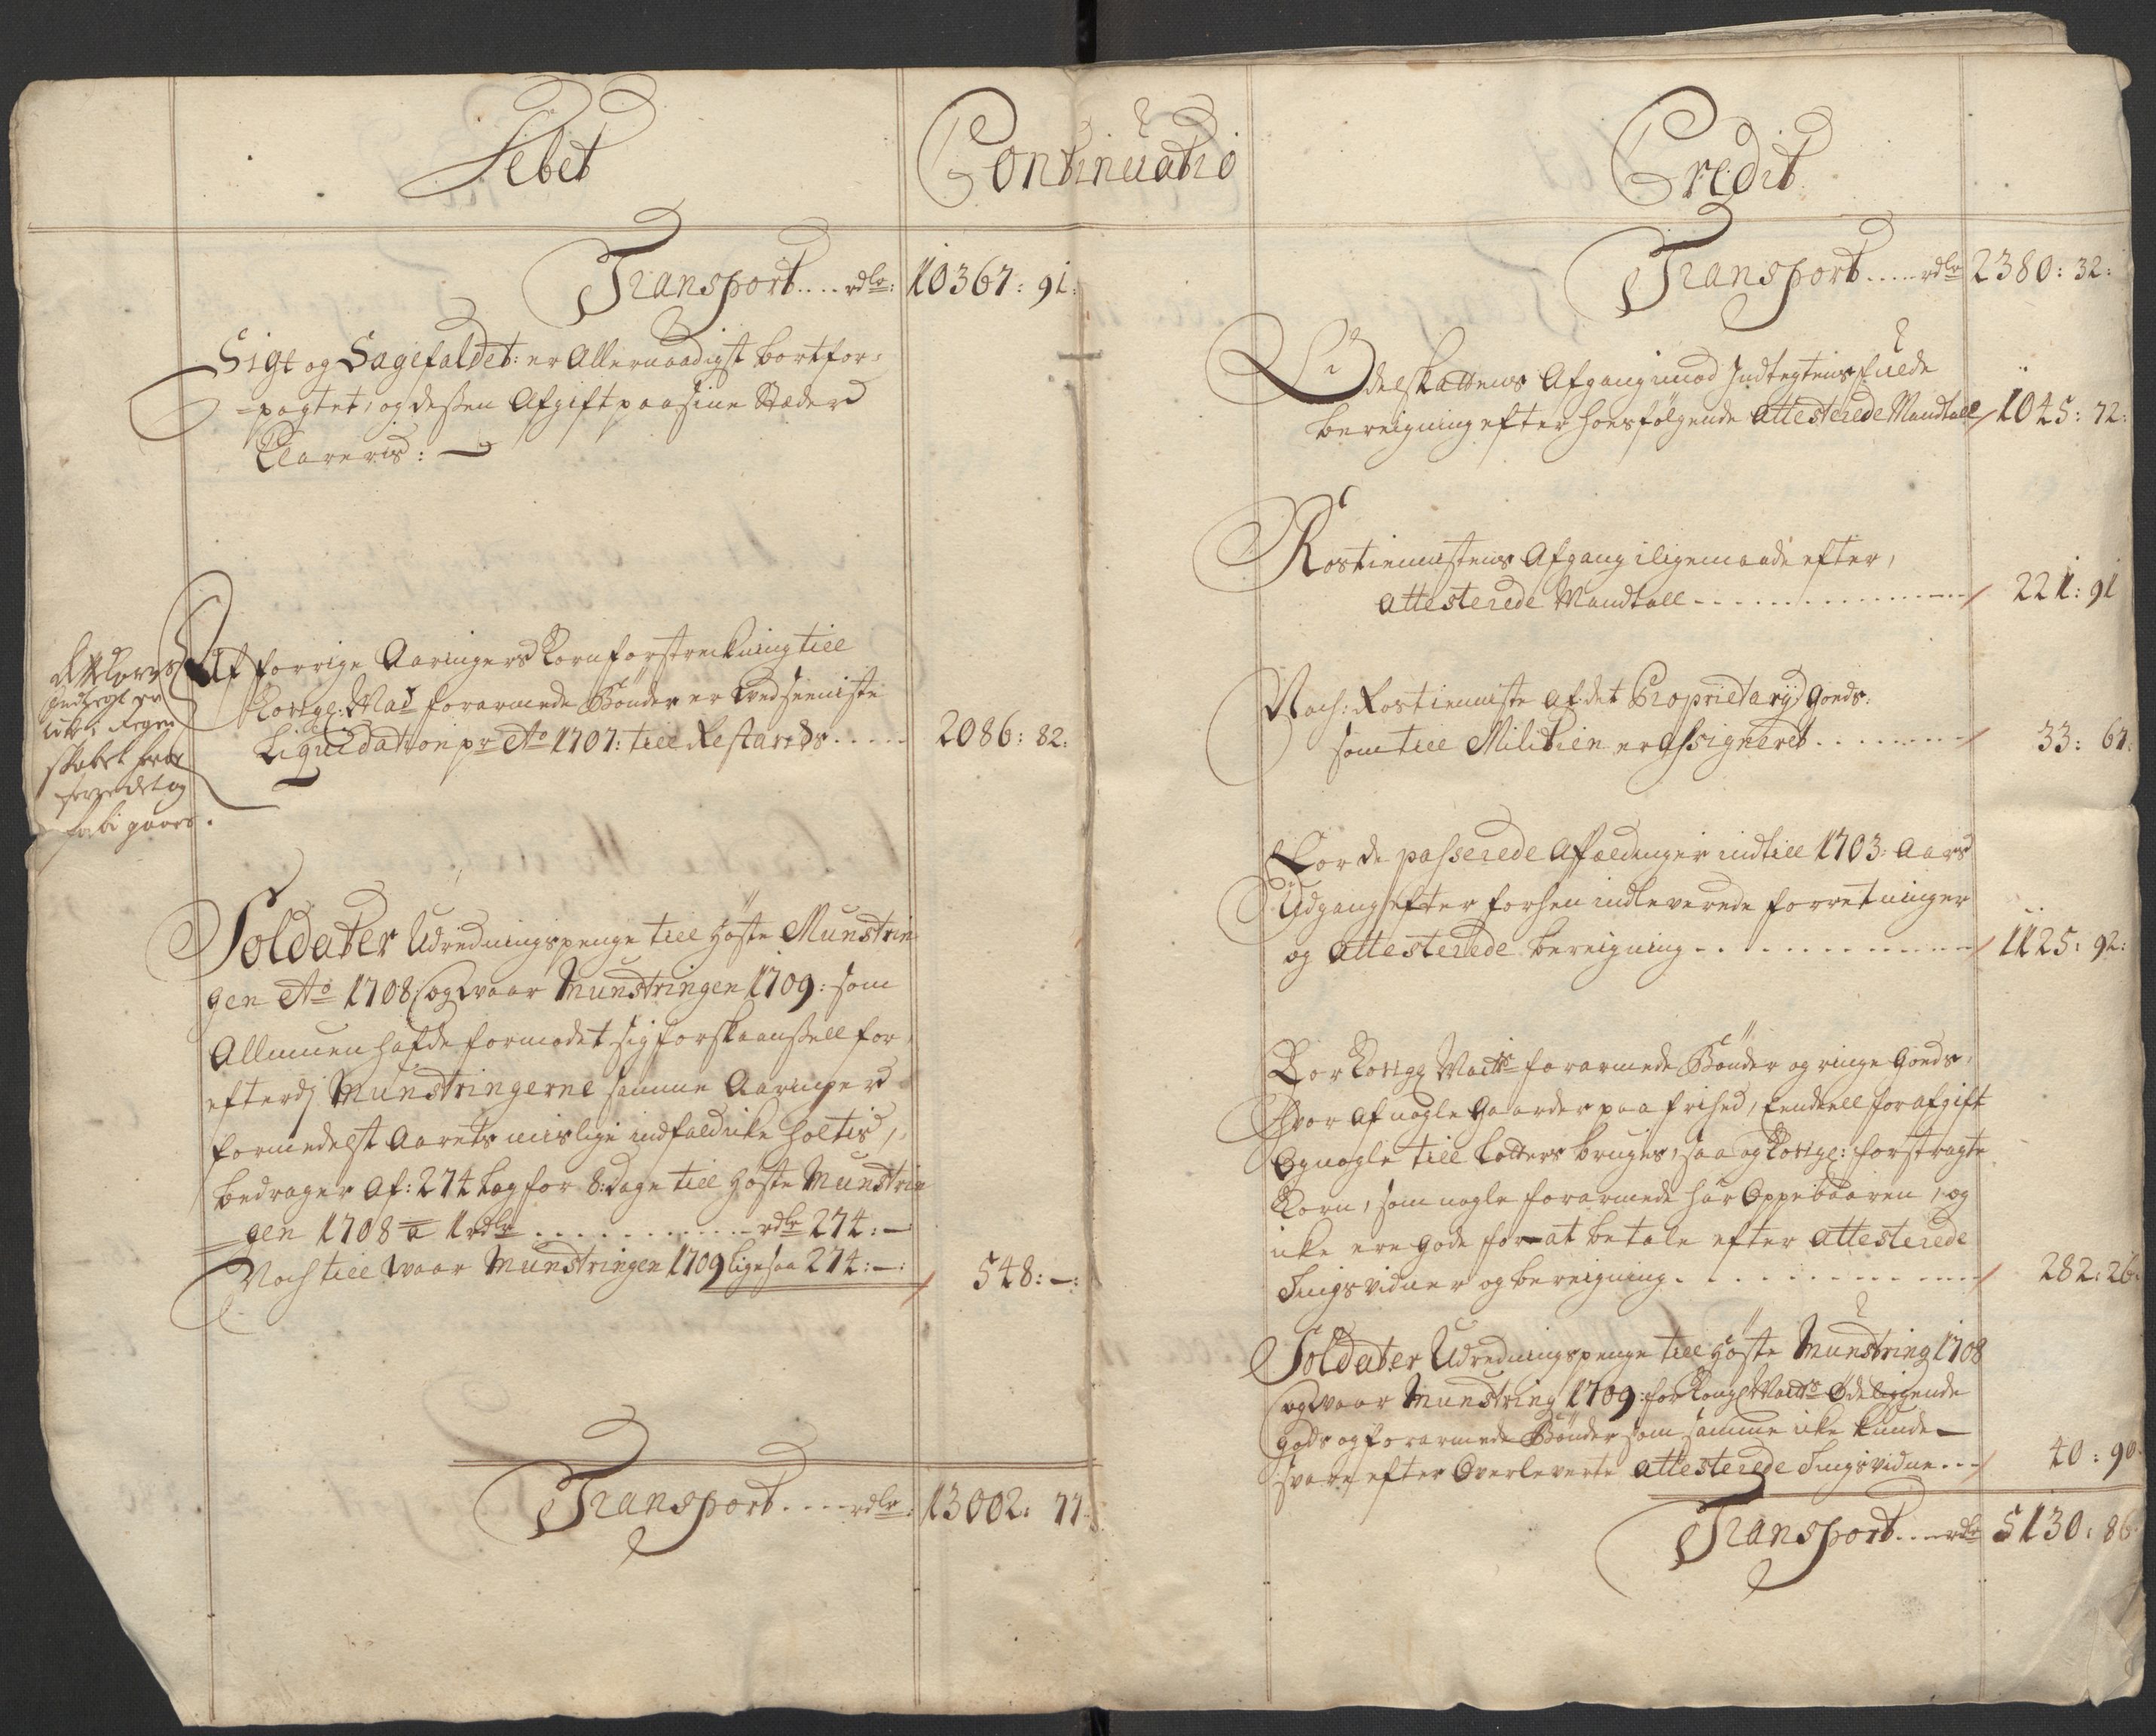 Debet
Continuatio
Credit
Transport.... rdlr: 10367: 91:
Sigt og Sagefaldet: er Allernaadigst bortfor-
=pagtet, og dessen Afgift paa sine Stæder
Clareris: —
Af forrige Aaringers Kornforstreckning till
Kongl: May forarmede Bønder er ved seeniste
Liquidation pr Ao 1707: till Restands..... 2086: 82:
indtegt er
skabet
Soldater Udredningspenge till Høste Munstrin
gen Ao 1708 og Vaar Munstringen 1709: som
Allmuen hafde formodet sig forskaanssell for,
efterdj Munstringerne samme Aaringer
formedelst Aarets mislige indfald icke holtes,
bedrager Af: 274 Leg for 8: Dage till Høste Munstrin
gen 1708 a 1 rdlr ........... rdlr 274: —
Noch till Vaar Munstringen 1709 ligesaa 274: —: 548: —:
Transport.... rdlr: 13002: 77:
Transport..... rdlr 2380: 32:
Odelskattens Afgang imod Indtegtens fulde
bereigning efter hoesfølgende Attesterede Mandtall 1045: 72:
Rostienistens Afgang i ligemaade efter,
Attesterede Mandtall .............. 221: 91
Noch: Rostienniste Af det Proprietary Goeds:
som till Militien er Assigneret ........ 33: 67:
For de passerede Affældinger indtill 1703: Aars
Udgang efter forhen indleverede forretninger
og Attesterede bereigning ............ 1125: 92:
For Kongl Maitts forarmede Bønder og ringe Goeds,
hvor Af nogle Gaarder paa frihed, Eendeell for afgift
Og nogle till Lotters bruges, saa og Kongl: forstragte
Korn, som nogle forarmede har Oppebaaren, og
icke ere gode for at betale efter Attesterede
Tingsvidner og bereigning ............. 282: 26:
Soldater Udredningspenge till Høste Munstring 1708
og Vaar Munstring 1709: for Kongl Maitts Ødeliggende
gods og forarmede Bønder som samme icke kunde
svare, efter Overleverte Attesterede Tingsvidne... 40: 90
Transport.... rdlr 5130: 86